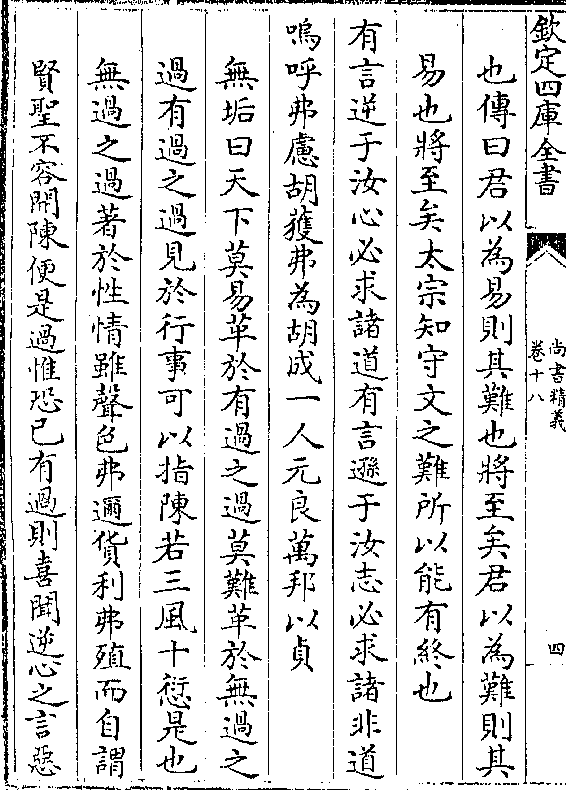 欽定四庫全書
尚書精義
卷十八
四
也傳曰君以為易則其難也將至矣君以為難則其
易也將至矣太宗知守文之難所以能有終也
有言逆于汝心必求諸道有言遜于汝志必求諸非道
嗚呼弗慮胡獲弗為胡成一人元良萬邦以貞
無垢曰天下莫易革於有過之過莫難革於無過之
過有過之過見於行事可以指陳若三風十愆是也
無過之過著於性情雖聲色弗邇貨利弗殖而自謂
賢聖不容開陳便是過惟恐已有過則喜聞逆心之言惡